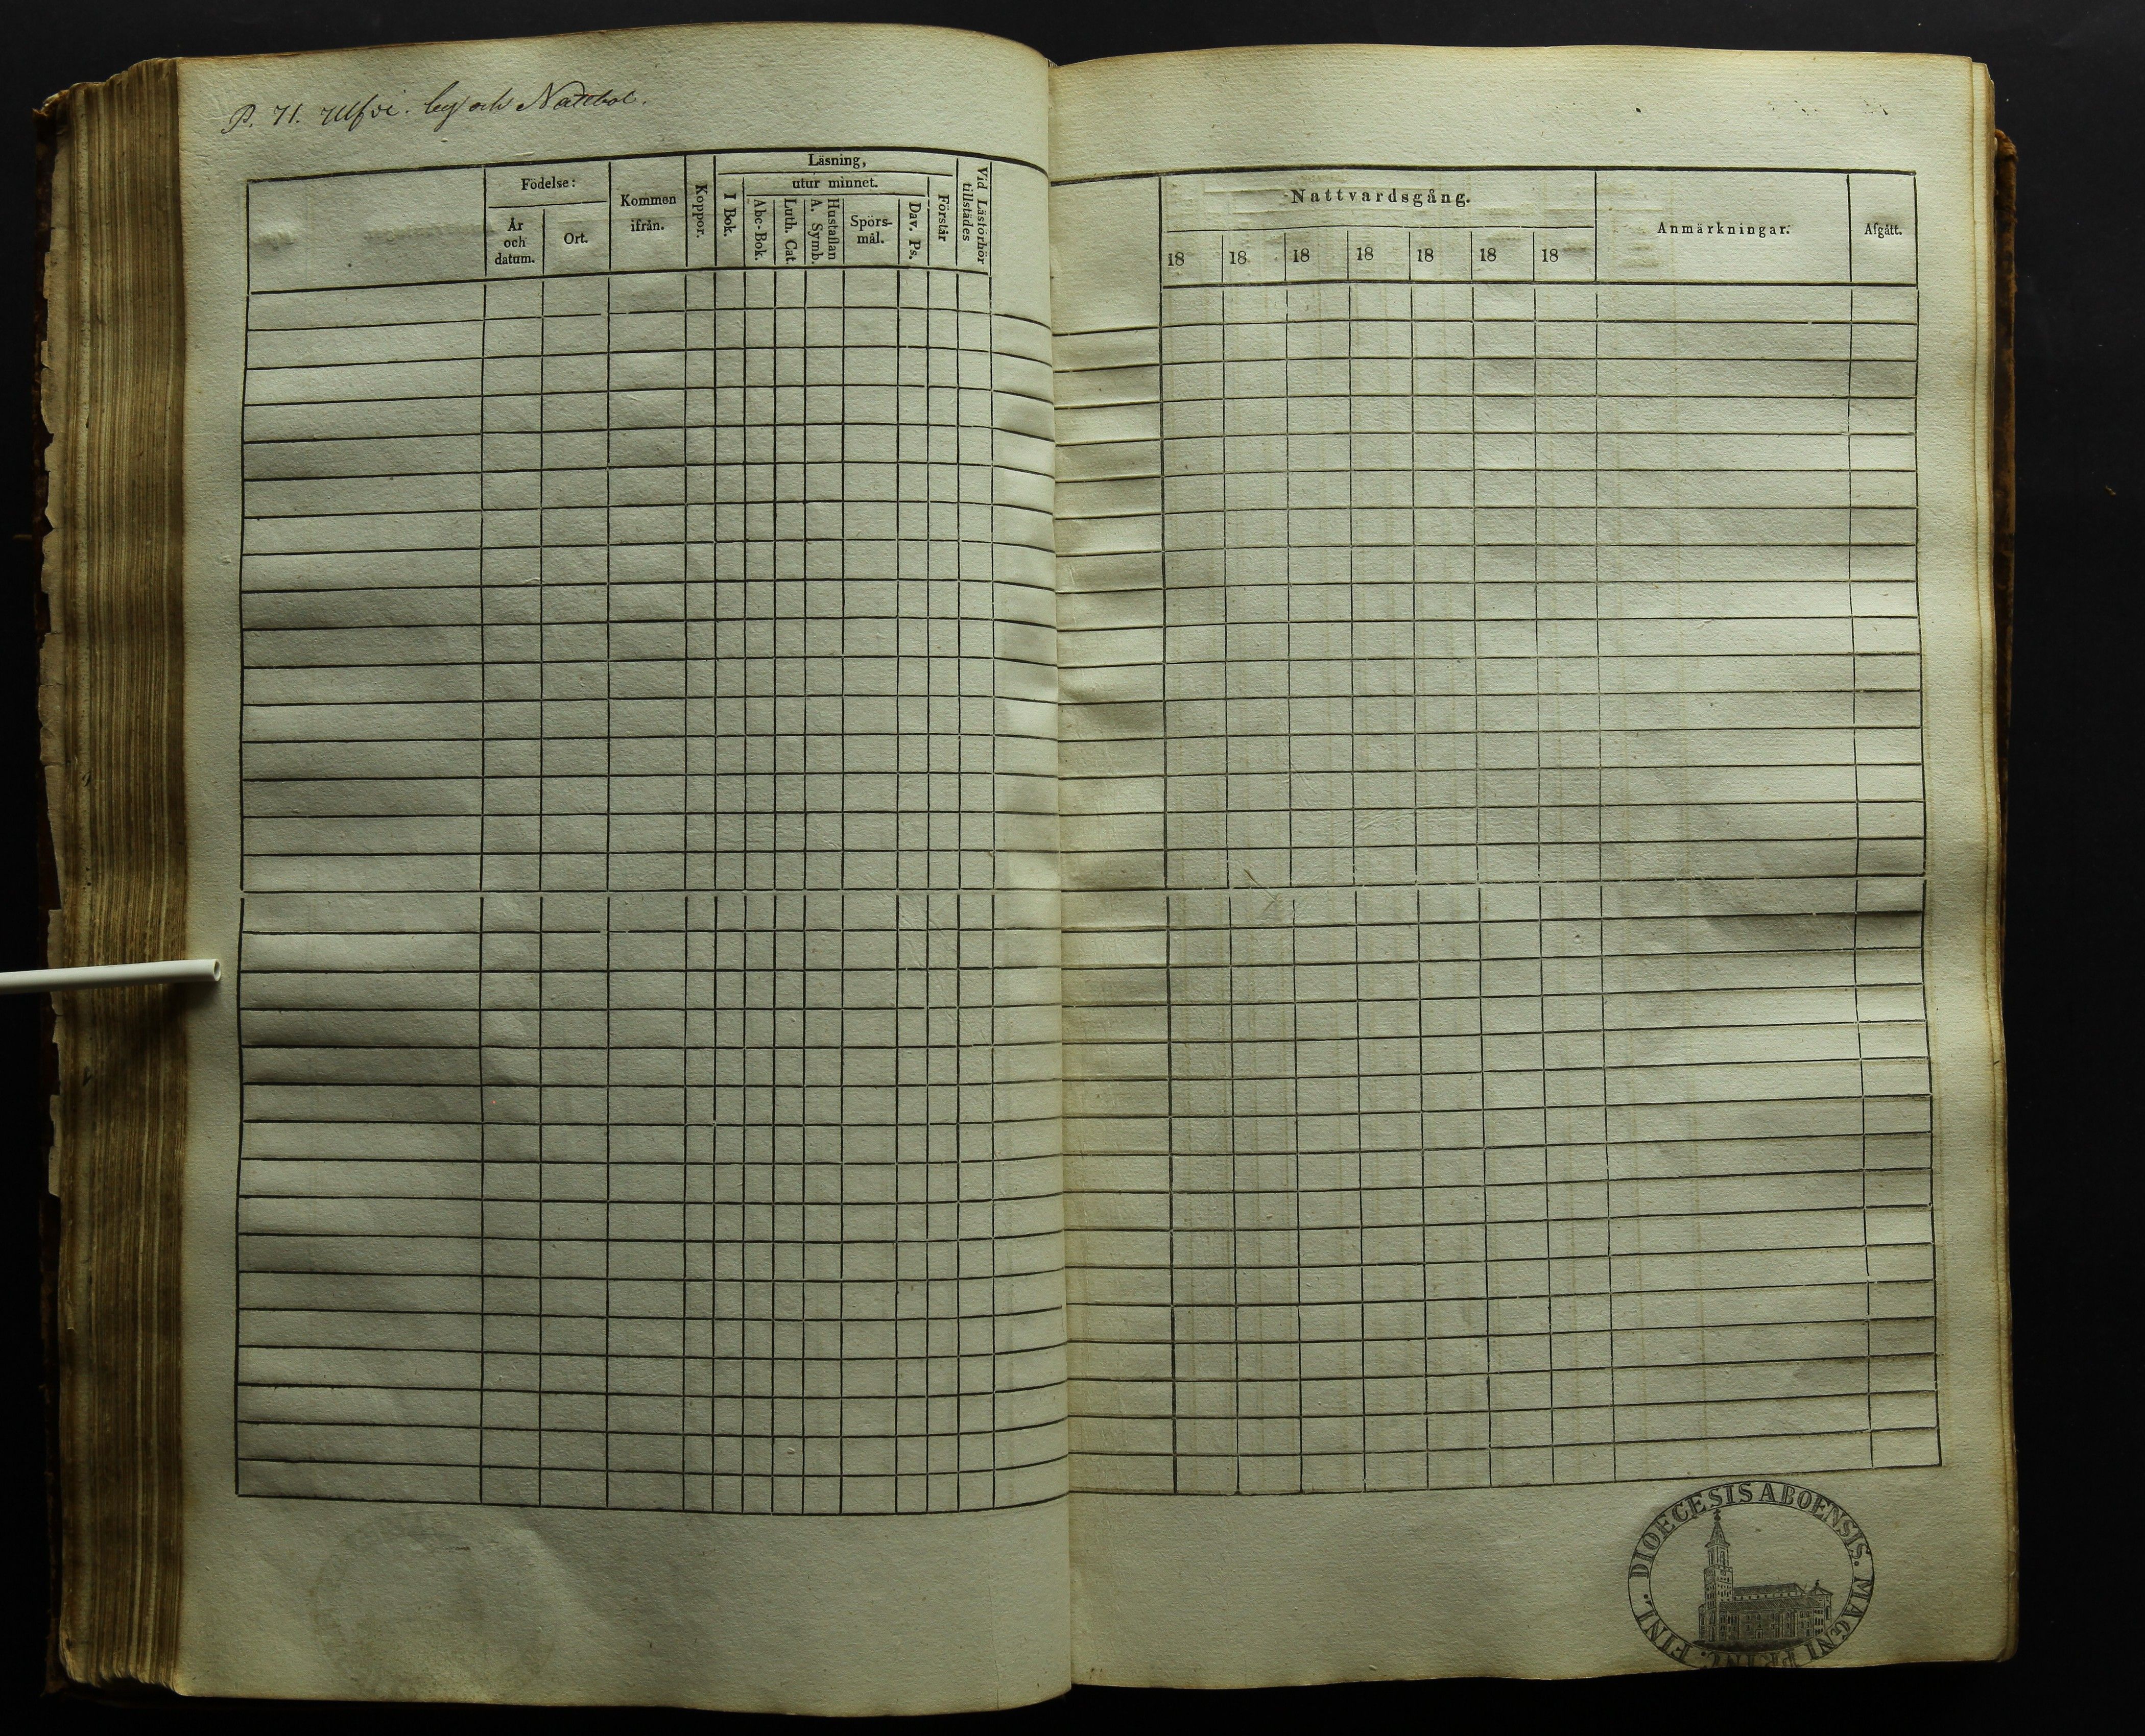 P. 71. Ulfvi. by och Nättbol.
Födelse:
År
och
datum.
Ort.
Kommen
ifrån.
Koppor.
Läsning,
I Bok.
utur minnet.
Abc-Bok.
Luth. Cat.
Hustaflan
A. Symb.
Spörs-
mål.
Dav. Ps.
Förstår
Vid Läsförhör
tillstädes
Nattvardsgång.
18 18 18 18 18 18 18
Anmärkningar.
Afgått.
DIOECESIS ABOENSIS. MAGNI PRINC. FINL.